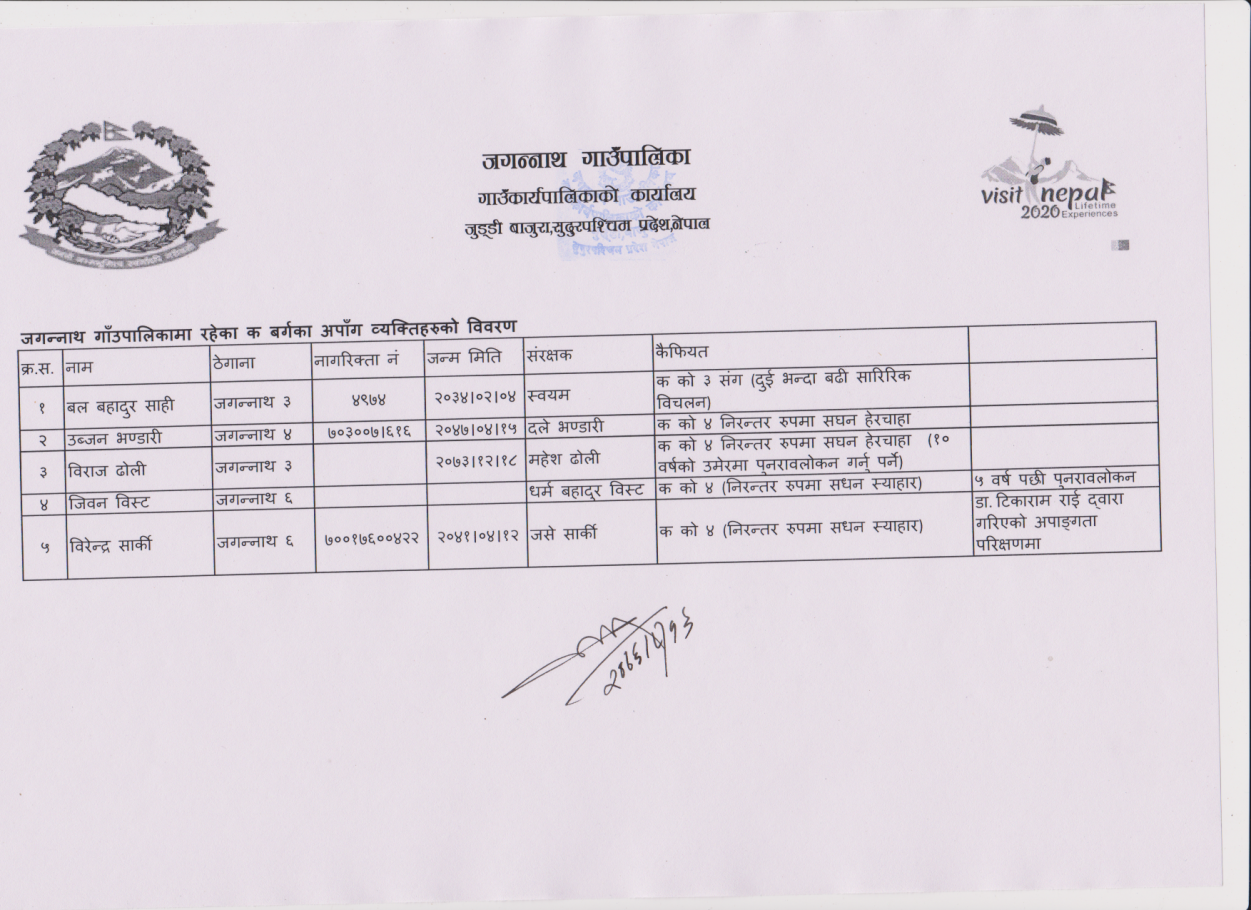 जगन्नाथ गाउँपालिका
गाउँकार्यपालिकाको कार्यालय
जुड्डी बाजुरा,सुदुरपश्चिम प्रदेश,नेपाल
visit nepal
2020 Lifetime Experiences
जगन्नाथ गाँउपालिकामा रहेका क बर्गका अपाँग व्यक्तिहरुको विवरण
क्र.स. नाम ठेगाना नागरिक्ता नं जन्म मिति संरक्षक कैफियत
१ बल बहादुर साही जगन्नाथ ३ ४९७४ २०३४।०२।०४ स्वयम क को ३ संग (दुई भन्दा बढी सारिरिक
विचलन)
२ उब्जन भण्डारी जगन्नाथ ४ ७०३००७।६१६ २०४७।०४।१५ दले भण्डारी क को ४ निरन्तर रुपमा सघन हेरचाहा
३ विराज ढोली जगन्नाथ ३ २०७३।१२।१८ महेश ढोली क को ४ निरन्तर रुपमा सघन हेरचाहा (१०
वर्षको उमेरमा पुनरावलोकन गर्नु पर्ने)
४ जिवन विस्ट जगन्नाथ ६ धर्म बहादुर विस्ट क को ४ (निरन्तर रुपमा सधन स्याहार) ५ वर्ष पछी पुनरावलोकन
५ विरेन्द्र सार्की जगन्नाथ ६ ७००१७६००४२२ २०४१।०४।१२ जसे सार्की क को ४ (निरन्तर रुपमा सधन स्याहार) डा. टिकाराम राई द्वारा
गरिएको अपाङ्गता
परिक्षणमा